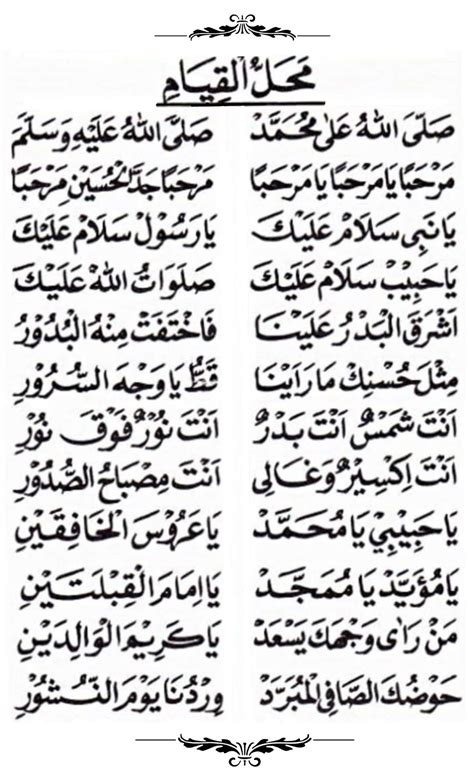 مَحَلُ الْقِيَامِ
صَلَّى اللهُ عَلَى مُحَمَّدْ صَلَّى اللهُ عَلَيْهِ وَسَلَّمَ
مَرْحَبًا يَا مَرْحَبًا يَا مَرْحَبًا مَرْحَبًا جَدَّ الْحُسَيْنِ مَرْحَبًا
يَا نَبِى سَلَامْ عَلَيْكَ يَا رَسُوْلْ سَلَامْ عَلَيْكَ
يَا حَبِيْبْ سَلَامْ عَلَيْكَ صَلَوَاتُ اللهْ عَلَيْكَ
اَشْرَقَ الْبَدْرُ عَلَيْنَا فَاخْتَفَتْ مِنْهُ الْبُدُوْرُ
مِثْلَ حُسْنِكْ مَا رَاَيْنَا قَطُّ يَا وَجْهَ السُّرُوْرِ
اَنْتَ شَمْسٌ اَنْتَ بَدْرٌ اَنْتَ نُوْرٌ فَوْقَ نُوْرٍ
اَنْتَ اِكْسِيْرٌ وَغَالِى اَنْتَ مِصْبَاحُ الصُّدُوْرِ
يَا حَبِيْبِيْ يَا مُحَمَّدْ يَا عَرُوْسَ الْخَافِقَيْنِ
يَا مُؤَيَّدْ يَا مُمَجَّدْ يَا اِمَامَ الْقِبْلَتَيْنِ
مَنْ رَاٰى وَجْهَكَ يَسْعَدْ يَا كَرِيْمَ الْوَالِدَيْنِ
حَوْضُكَ الصَّافِى الْمُبَرَّدْ وِرْدُنَا يَوْمَ النُّشُوْرِ